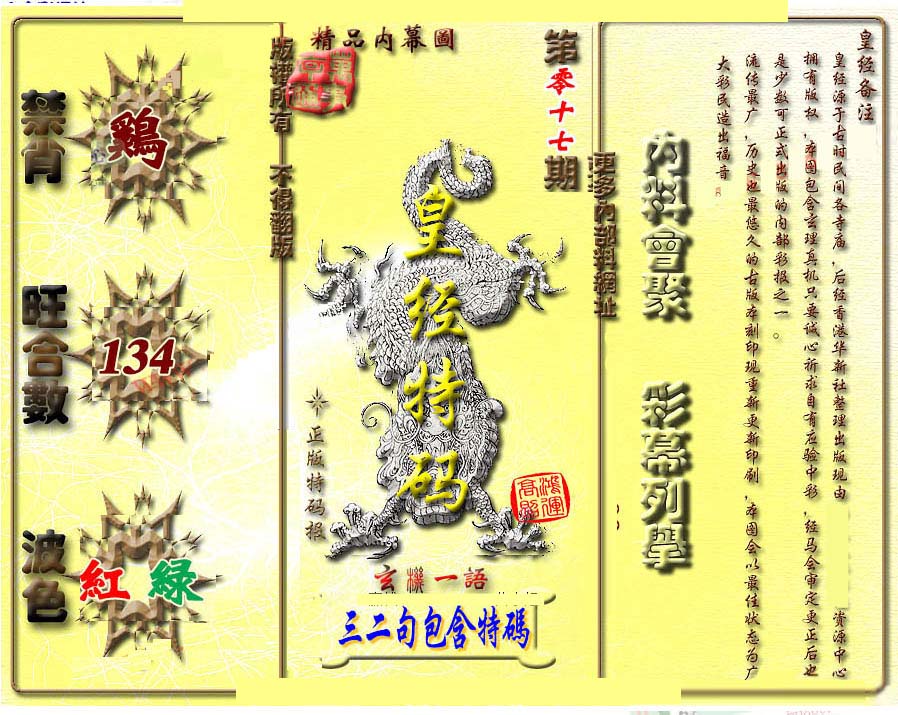 精品内幕圖
版權所有 不得翻版
第零十七期
更多内部料網址
禁肖
鷄
旺合數
134
波色
紅 綠
皇经特码
正版特码报
鴻運高照
玄機一語
三二句包含特碼
内料會聚
彩幕列舉
皇经备注
皇经源于古时民间各寺庙，后经香港华新社整理出版现由 资源中心
拥有版权，本图包含玄理真机只要诚心祈求自有应验中彩，经马会审定更正后也
是少数可正式出版的内部彩报之一。
流传最广，历史也最悠久的古版本刻印现重新更新印刷，本图会以最佳状态为广
大彩民造出福音